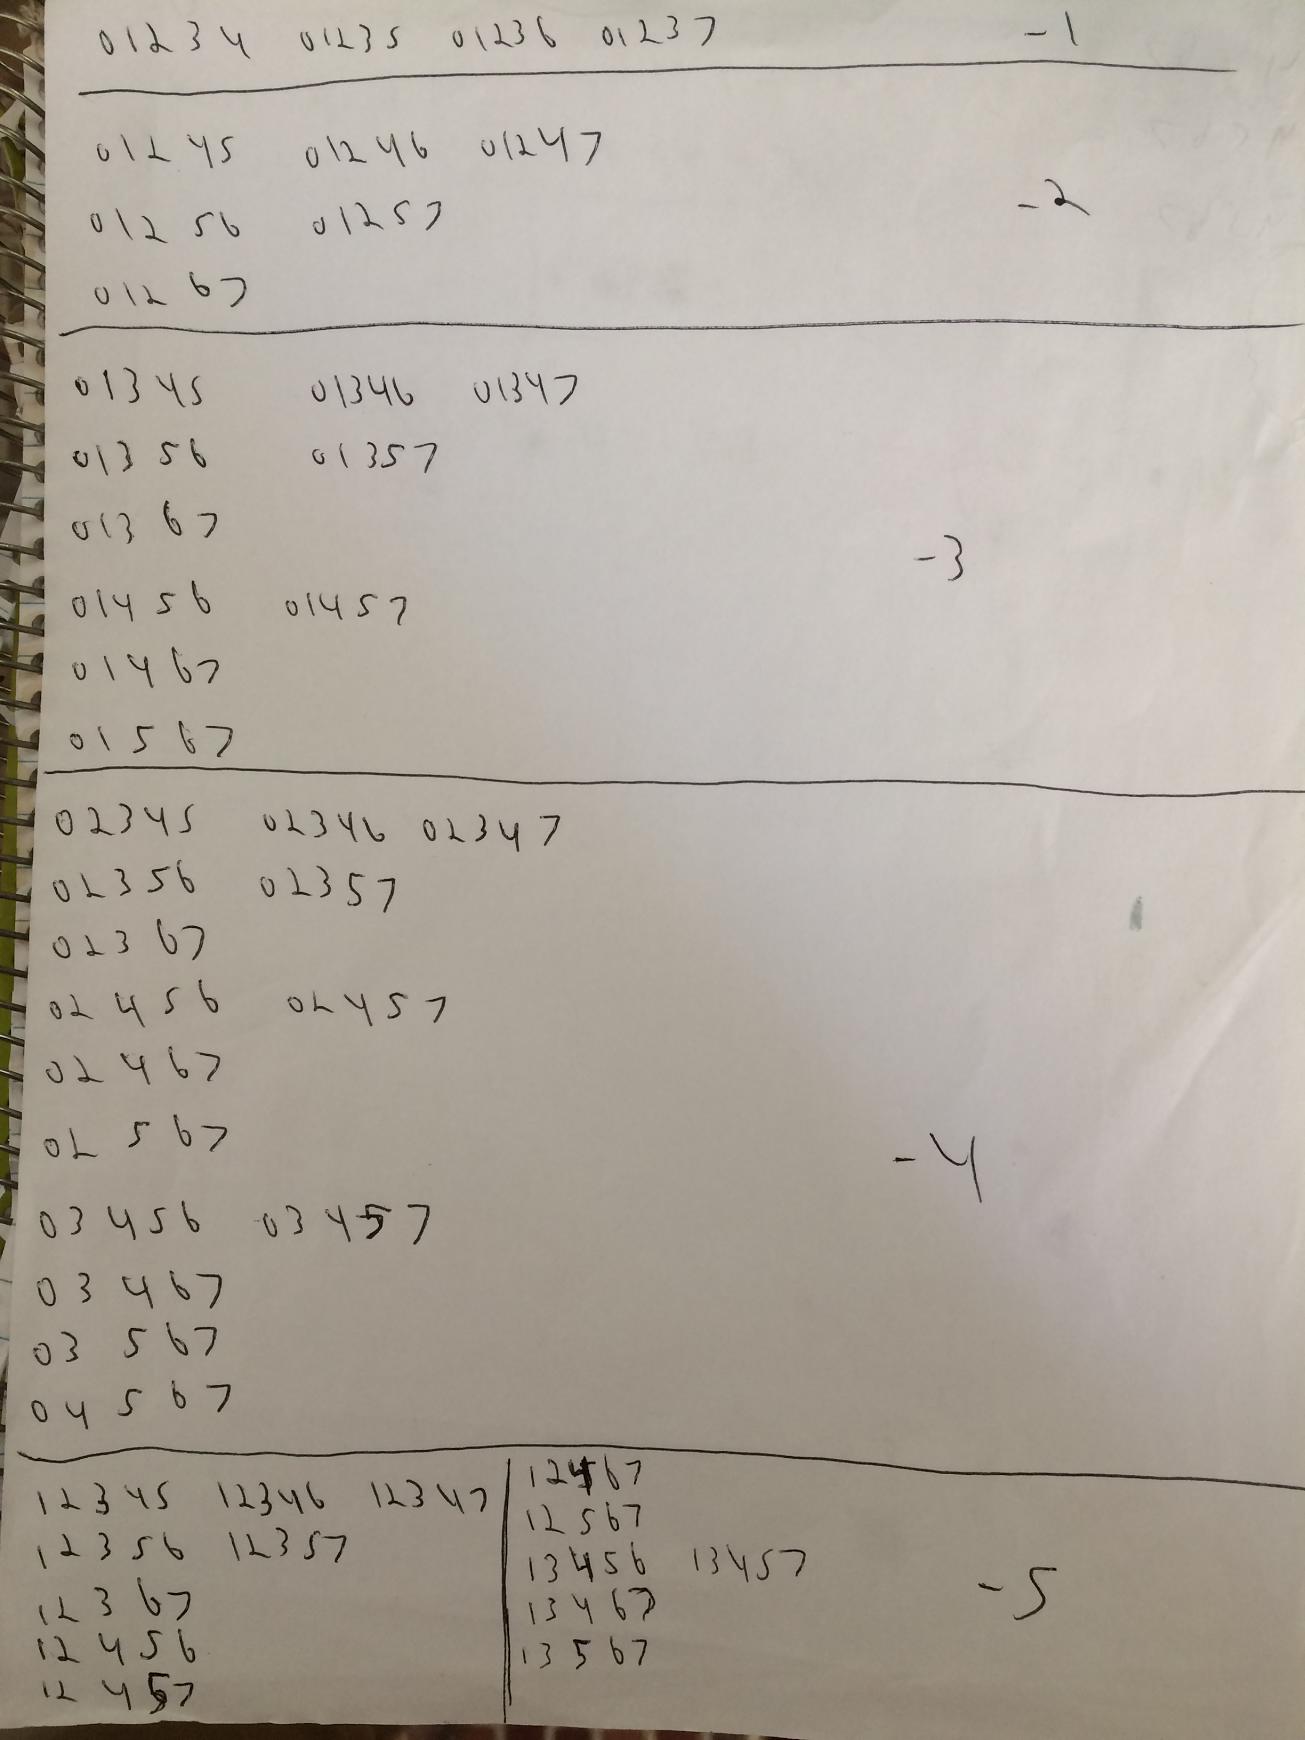 01234 01235 01236 01237 -1
01245 01246 01247
01256 01257 -2
01267
01345 01346 01347
01356 01357
01367 -3
01456 01457
01467
01567
02345 02346 02347
02356 02357
02367
02456 02457
02467
02567 -4
03456 03457
03467
03567
04567
12345 12346 12347
12356 12357
12367
12456
12457
12467
12567
13456 13457 -5
13467
13567